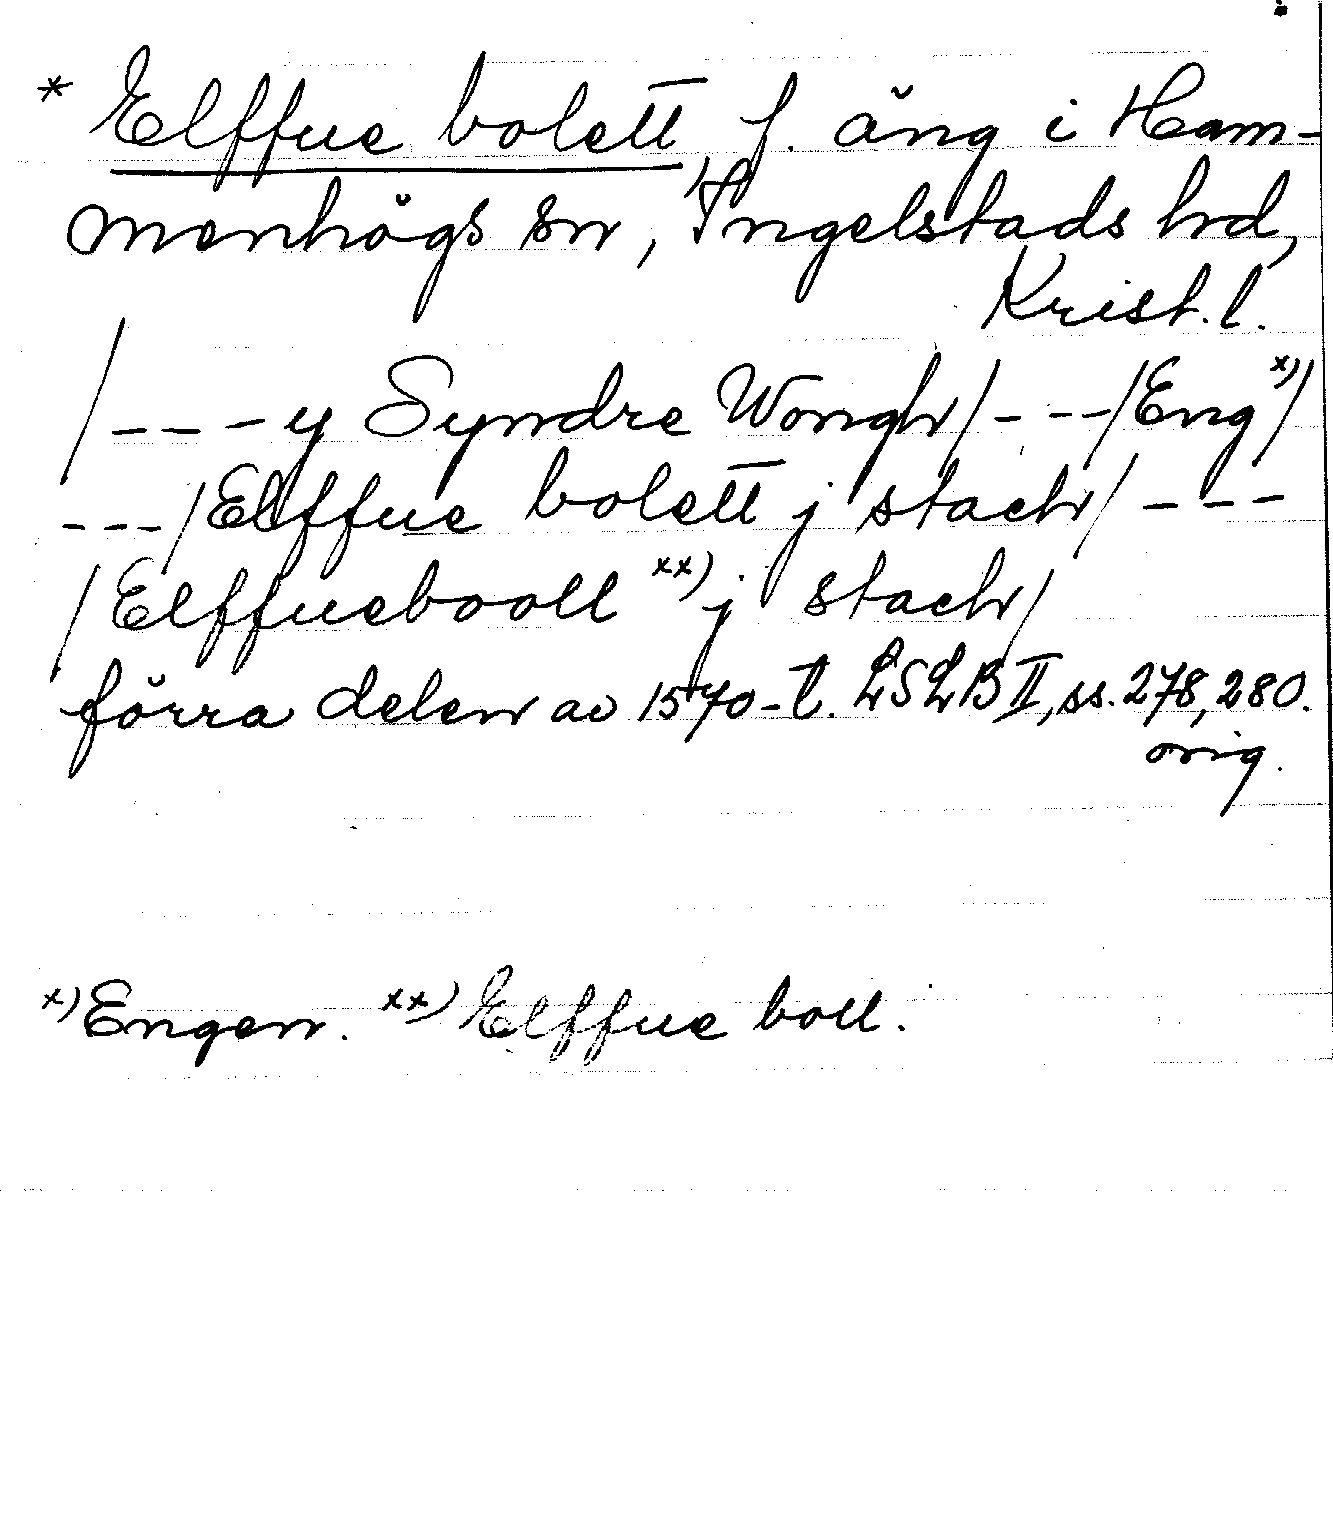 * Elffue bolett, f. äng i Ham-
menhögs sn, Ingelstads hd,
Krist. l.
/---y Syndre Wongh/---/Eng x)/
---/Elffue bolett j stach/---
/Elffueboall xx) j stach/
förra delen av 1570-t. LSLB II, ss. 278, 280.
orig.
x) Engen. xx) Elffue boll.